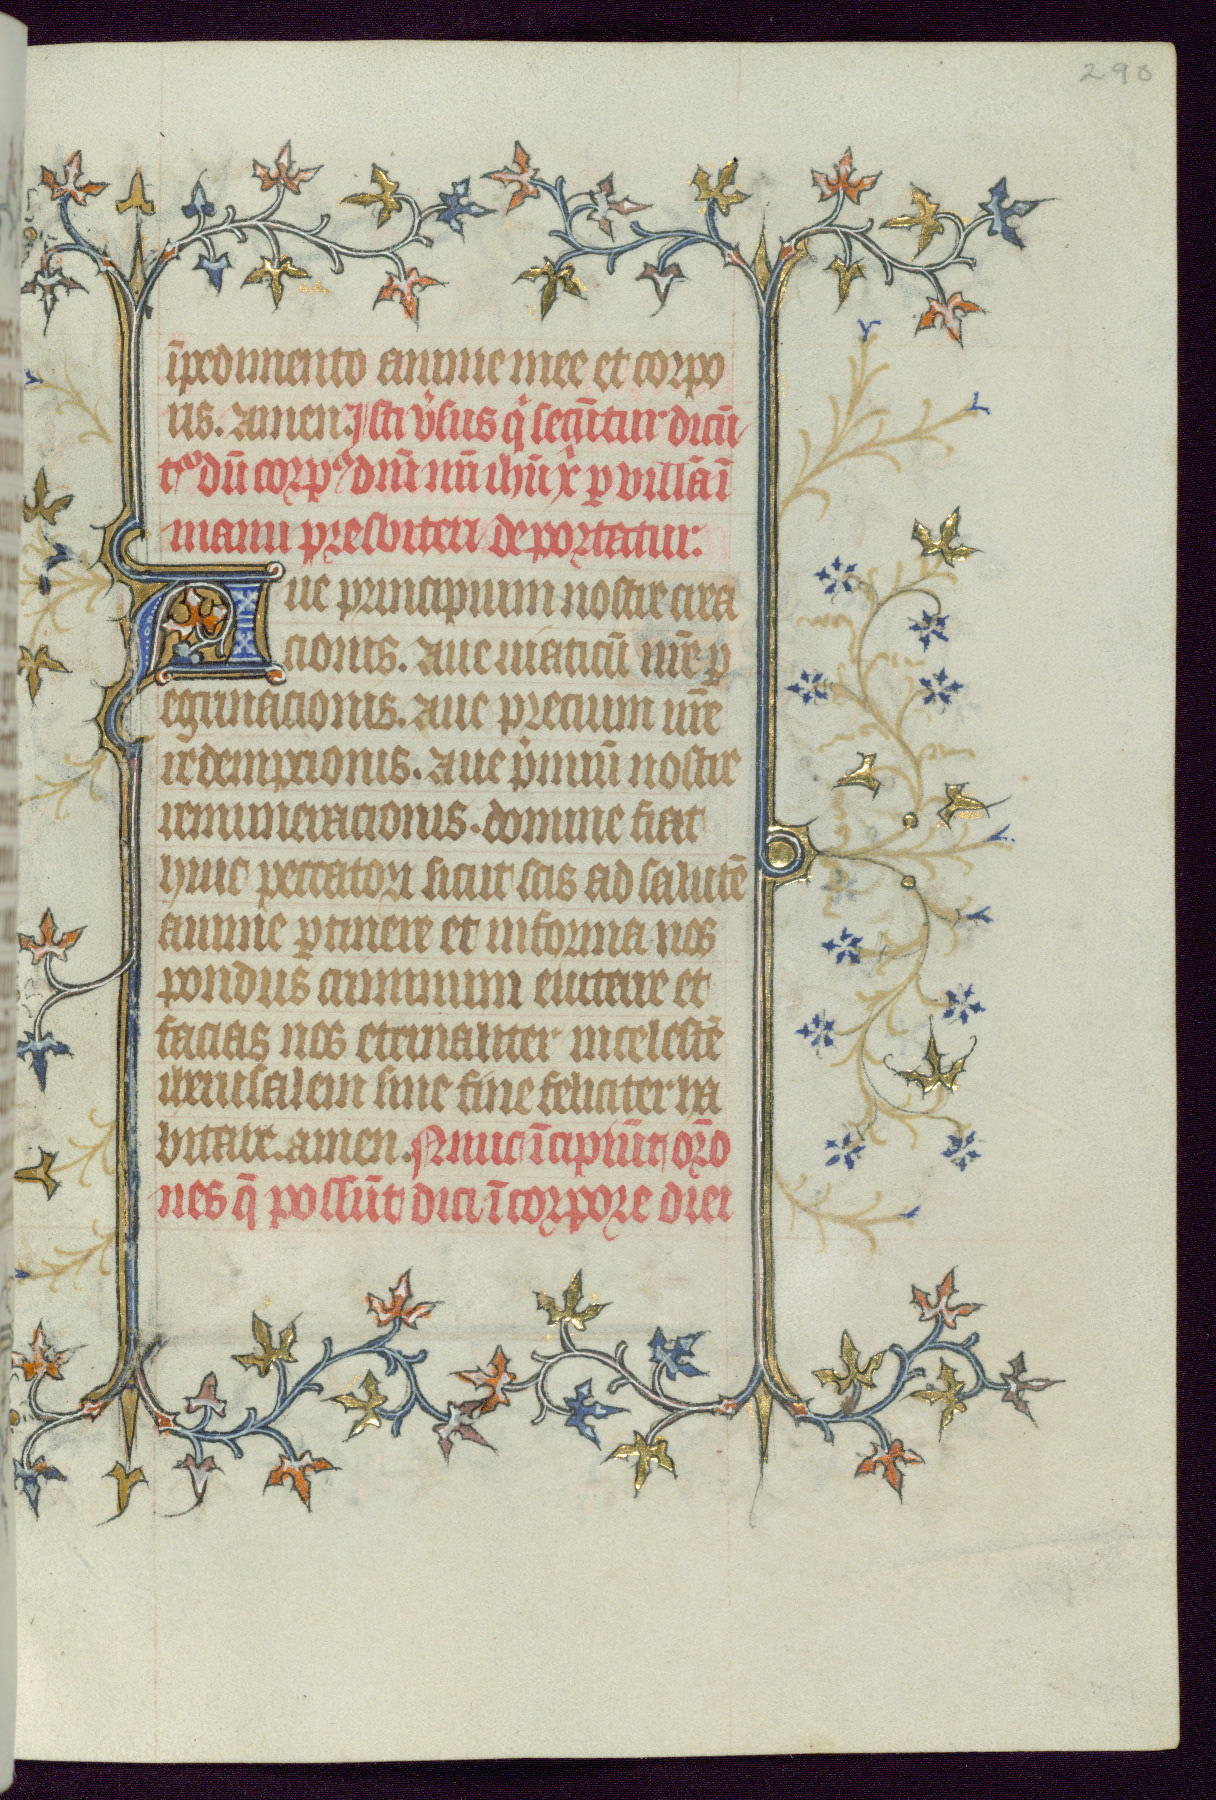 290
īpedimento anime mee et corpo
ris. Amen. Isti ṽsus q̄ secũtur dicũ
tᵒ dũ corpᵒ dñi nñi ihũ xͥ ꝑ villã ī
manu presbiteri deportatur.
Aue principium nostre crea
cionis. Aue uiaticũ nr̃e ꝑ
egrinacionis. Aue precium nr̃e
redempcionis. Aue p̃miũ nostre
remuneracionis. domine fiat
huic peccatori sicut scis ad salutẽ
anime ꝑtinere et informa nos
pondus criminum euitare et
facias nos eternaliter in celestẽ
iherusalem sine fine feliciter ha
bitare. amen. Nunc īcipiũt oro͂
nes q̄ possũt dici ī corpore diei